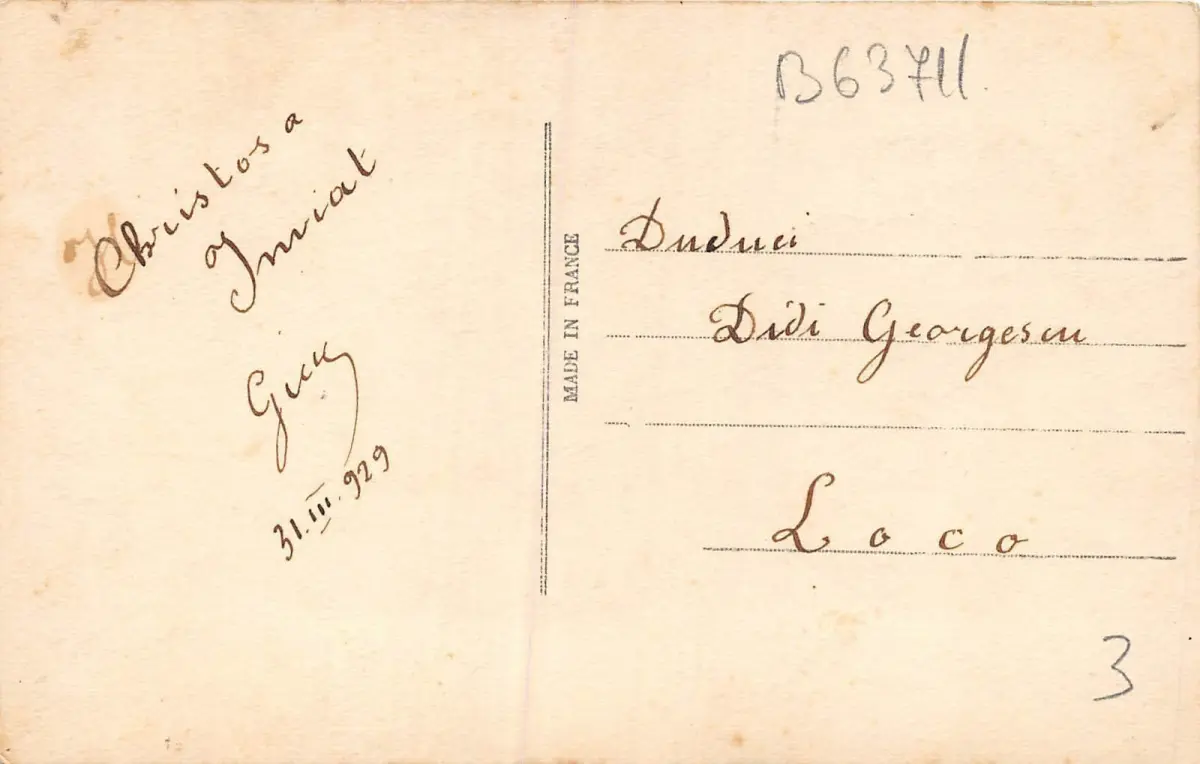 Christos a
Inviat
Gicu
31.III.929
B63711.
MADE IN FRANCE
Duduci
Didi Georgescu
Loco
3